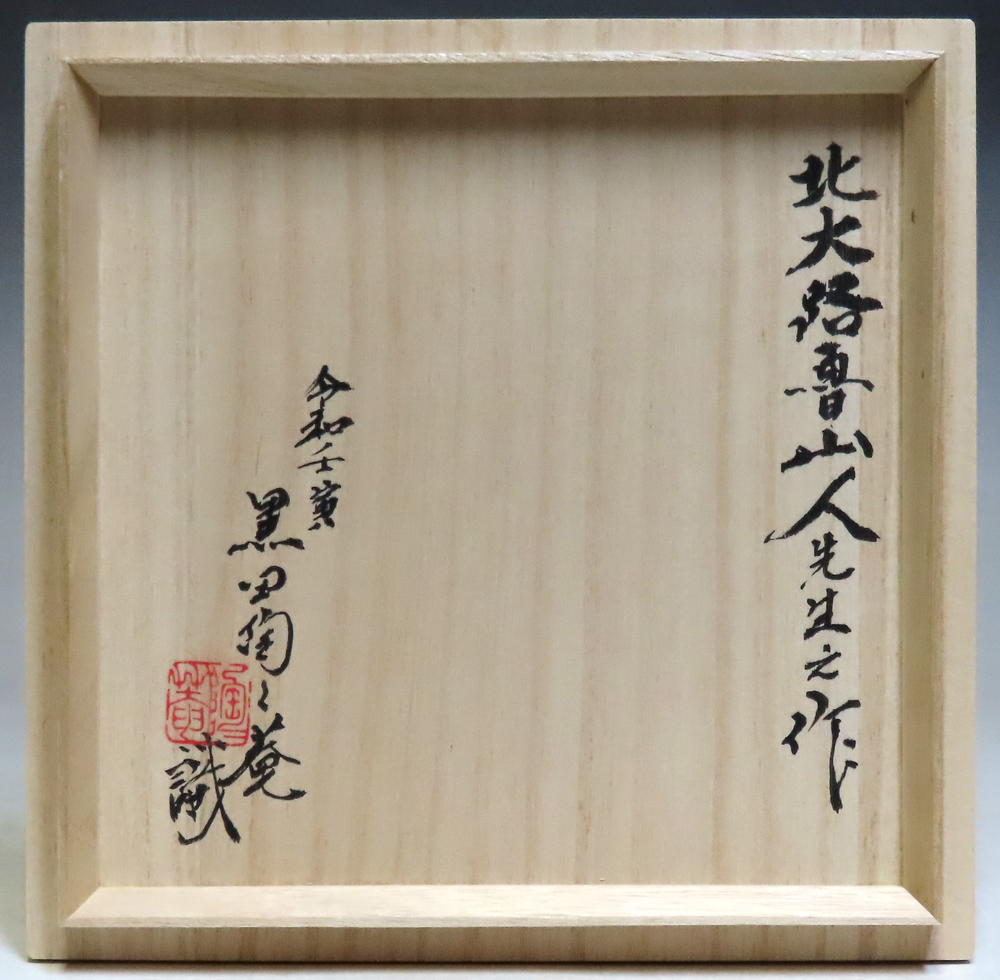 北大路魯山人先生之作
令和壬寅
黒田陶々菴
識
陶々菴